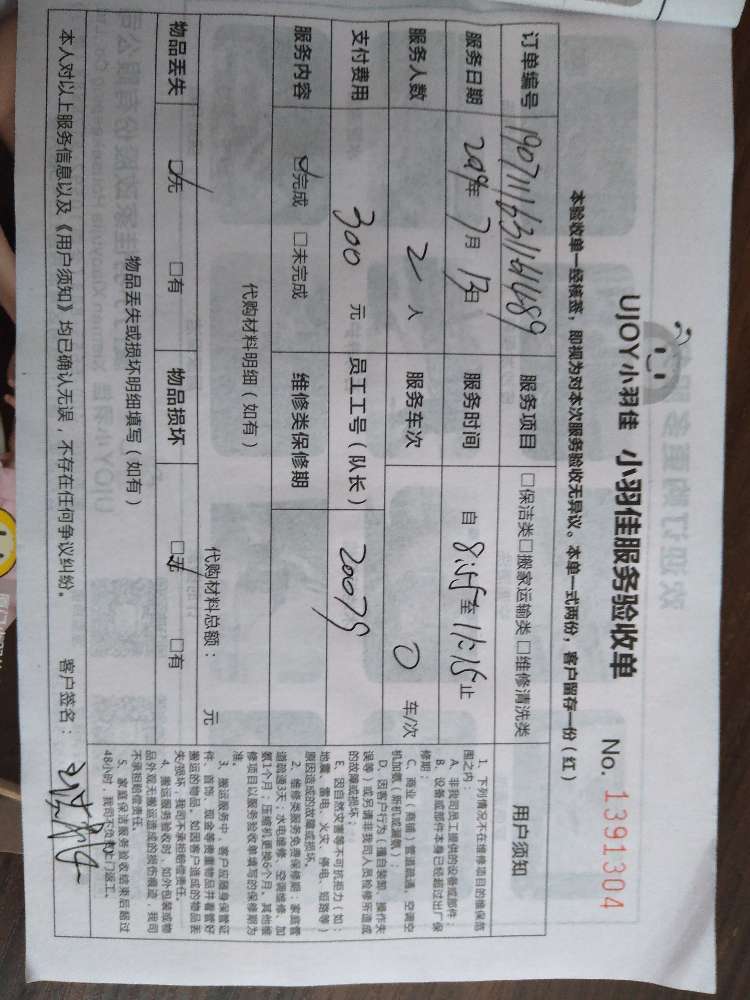 UJOY小羽佳 小羽佳服务验收单 No. 1391304
本验收单一经核签，即视为对本次服务验收无异议。本单一式两份，客户留存一份（红）
订单编号
服务项目 □保洁类□搬家运输类□维修清洗类
服务日期 2019年 7月 13日
服务时间 自 8:15 至 11:15 止
服务人数 2 人
服务车次 0 车/次
支付费用 300 元
员工工号（队长） 20079
服务内容 ☑完成 □未完成
维修类保修期
代购材料明细（如有）
代购材料总额： 元
物品丢失 ☑无 □有
物品损坏 ☑无 □有
物品丢失或损坏明细填写（如有）
本人对以上服务信息以及《用户须知》均已确认无误，不存在任何争议纠纷。 客户签名：
用户须知
1、下列情况不在维修项目的维保范
围之内：
A、非我司员工提供的设备或部件；
B、设备或部件本身已经超过出厂保
修期；
C、商业（商铺）管道疏通、空调空
机加氨（新机或漏氨）；
D、因客户行为（擅自装卸、操作失
误等）或另请非我司人员检修所造成
的故障或损坏；
E、因自然灾害等不可抗拒力（如：
地震、雷电、火灾、停电、短路等）
原因造成的故障或损坏。
2、维修类服务免费保修期：家庭管
道疏通3天；水电维修、空调维修、加
氨1个月；压缩机更换6个月，其他维
修项目以服务验收单填写的保修期为
准。
3、搬运服务中，客户应随身保管证
件、首饰、现金等贵重物品并看管好
搬运的物品，如因客户造成的物品丢
失/损坏，我司不承担赔偿责任。
4、搬运服务验收时，如外包装或物
品外观无搬运造成的损伤痕迹，我司
不承担赔偿责任。
5、家庭保洁服务验收结束后超过
48小时，我司不负责上门返工。